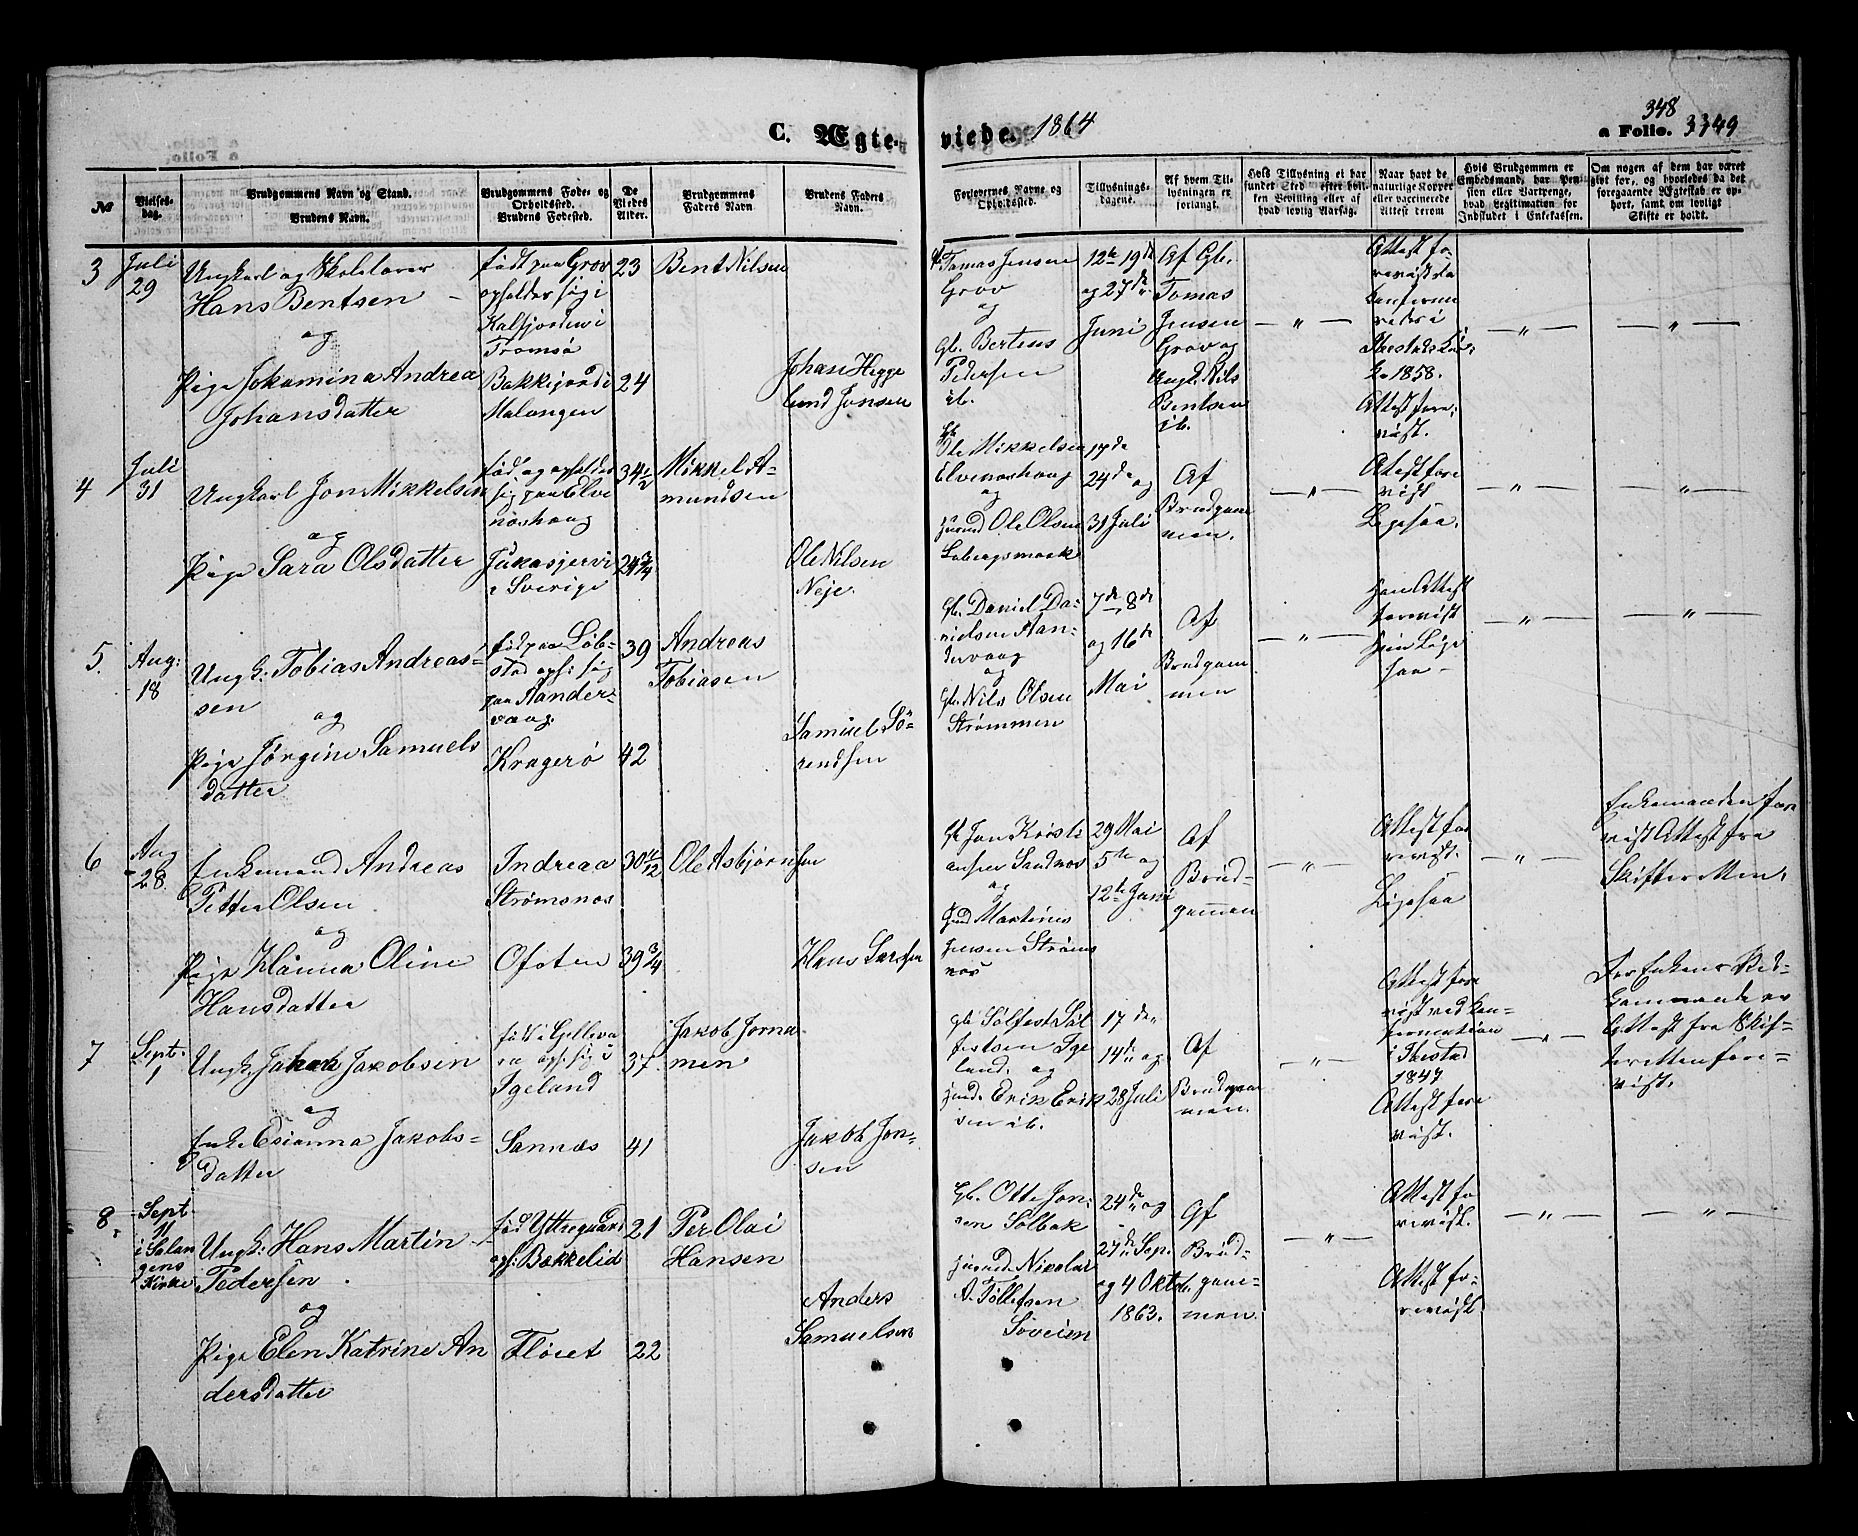 C. Ægte-
viede. 1864
348
a Folio. 3349
№
Vielses-
dag.
Brudgommens Navn og Stand.
Brudens Navn.
Brudgommens Føde- og
Opholdssted.
Brudens Fødested.
De
Viedes
Alder.
Brudgommens
Faders Navn.
Brudens Faders
Navn.
Forlovernes Navne og
Opholdssted.
Tillysnings-
dagene.
Af hvem Til-
lysningen er
forlangt.
Hvis Tillysning ei har
fundet Sted efter hvil-
ken Bevilling eller af
hvad lovlig Aarsag.
Naar havt de
naturlige Kopper
eller vaccinerede
Attest derom
Hvis Brudgommen er
Embedsmand, har Pen-
sion eller Vartpenge,
hvad Legitimation for
Indskudet i Enkekassen.
Om nogen af dem har været
gift før, og hvorledes da det
foregaaende Ægteskab er op-
hørt, samt om lovligt
Skifte er holdt.
3
Juli
29
Ungkarl og Skolelærer
Hans Bentsen
og
Pige Jokamina Andrea
Johansdatter
født paa Grov
opholder sig i
Kalfjorden i
Tromsø
Bakkejord i
Malangen
23
24
Bent Nilsen
Johan Hegge
lund Jonsen
Tomas Jensen
Grov
og
Gb. Berteus
Pedersen
ib.
12te 19de
og 27de
Juni
Af Gb.
Tomas
Jensen
Grov og
Ungk. Nils
Bentsen
ib.
— " —
Attest fo-
revist da
konfirme
redes i
Ibestad Kir.
1858.
Attest fore-
vist.
— " —
— " —
4
Juli
31
Ungkarl Jon Mikkelsen
og
Pige Sara Olsdatter
født og opholder
sig paa Elve
neshaug
Jukasjervi
i Sverige
34 1/2
24 3/4
Mikkel A-
mundsen
Ole Nilsen
Neje.
Gb. Ole Mikkelsen
Elveneshaug
og
Huusmd Ole Olsen
Løbergsmark
17de
24de og
31 Juli
Af
Brudgom
men.
— " —
Attest fore
vist
Ligesaa.
— " —
— " —
5.
Aug:
18
Ungk. Tobias Andreas-
sen
og
Pige Jørgine Samuels
datter
født paa Løb-
stad oph: sig
paa Aander-
vaag.
Kragerø
39
42
Andreas
Tobiasen
Samuel Sö-
rendsen
Gb. Daniel Da-
nielsen Aan-
dervaag
og
Gb. Nils Olsen
Strømmen
7de 8de
og 16de
Mai
Af
Brudgom
men
— " —
Han Attest
forevist
Hun Lige
saa
— " —
— " —
6
Aug
28
Enkemand Andreas
Petter Olsen
og
Pige Hanna Oline
Hansdatter
Indreaa
Strømsnes
Ofoten
30 11/12
39 3/4
Ole Asbjørnsen
Hans Larsen
Gb. Jon Kristi-
ansen Sandnes
og
Huusmd Martinus
Jensen Strøms
nes
29 Mai
5te og
12te Juni
Af
Brud-
gommen
— " —
Attest fo
revist.
Ligesaa
— " —
Enkemanden fore
vist Attest fra
Skifteretten.
7
Sept.
1
Ungk. Jakob Jakobsen
og
Enke Esianna Jakobs-
datter
født i Gjelleva
re oph. sig i
Igeland
Sannæs
37
41
Jakob Jorna-
men
Jakob Jon-
sen
Gb. Sølfest Søl
festsen Ige
land. og
Huusmd. Erik Erik
sen ib.
17de
14de og
28 Juli
Af
Brudgom
men.
— " —
Attest fore
vist ved Kon-
firmation
i Ibestad
1847
Attest fore
vist.
— " —
For Enkens Ved-
kommende er
Attest fra Skif-
teretten fore-
vist.
8.
Sept
11
i Salan
gens
Kirke
Ungk: Hans Martin
Pedersen
og
Pige Elen Katrine An
dersdatter
fød Yttregaard
oph: Bækkelid
Fløret
21
22
Per Olai
Hansen
Anders
Samuelsen
Gb. Otte Jon-
sen Sølbak
Huusmd Nikolai
A. Tollefsen
Søveien
24de og
27de Sep.
og 4 Oktb.
1863.
Af
Brud-
gom-
men.
— " —
Attest fo
revist.
Attest fo-
revist
— " —
— " —